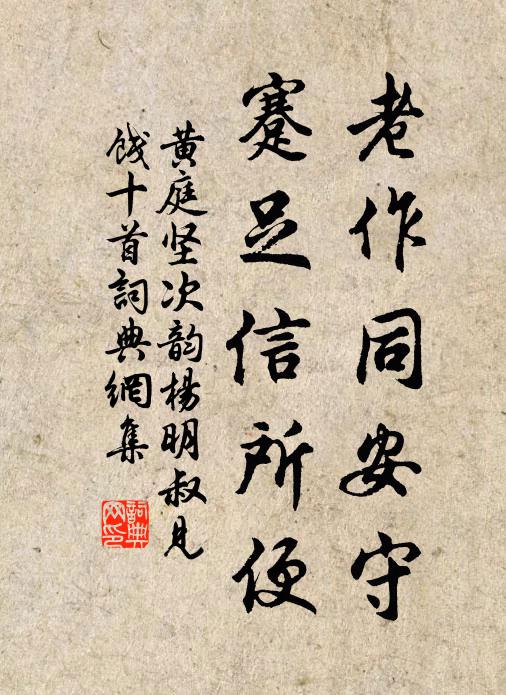 老作同安守
蹇足信所便
黄庭坚次韵楊明叔見
餞十首詞典網集
詞典
网印